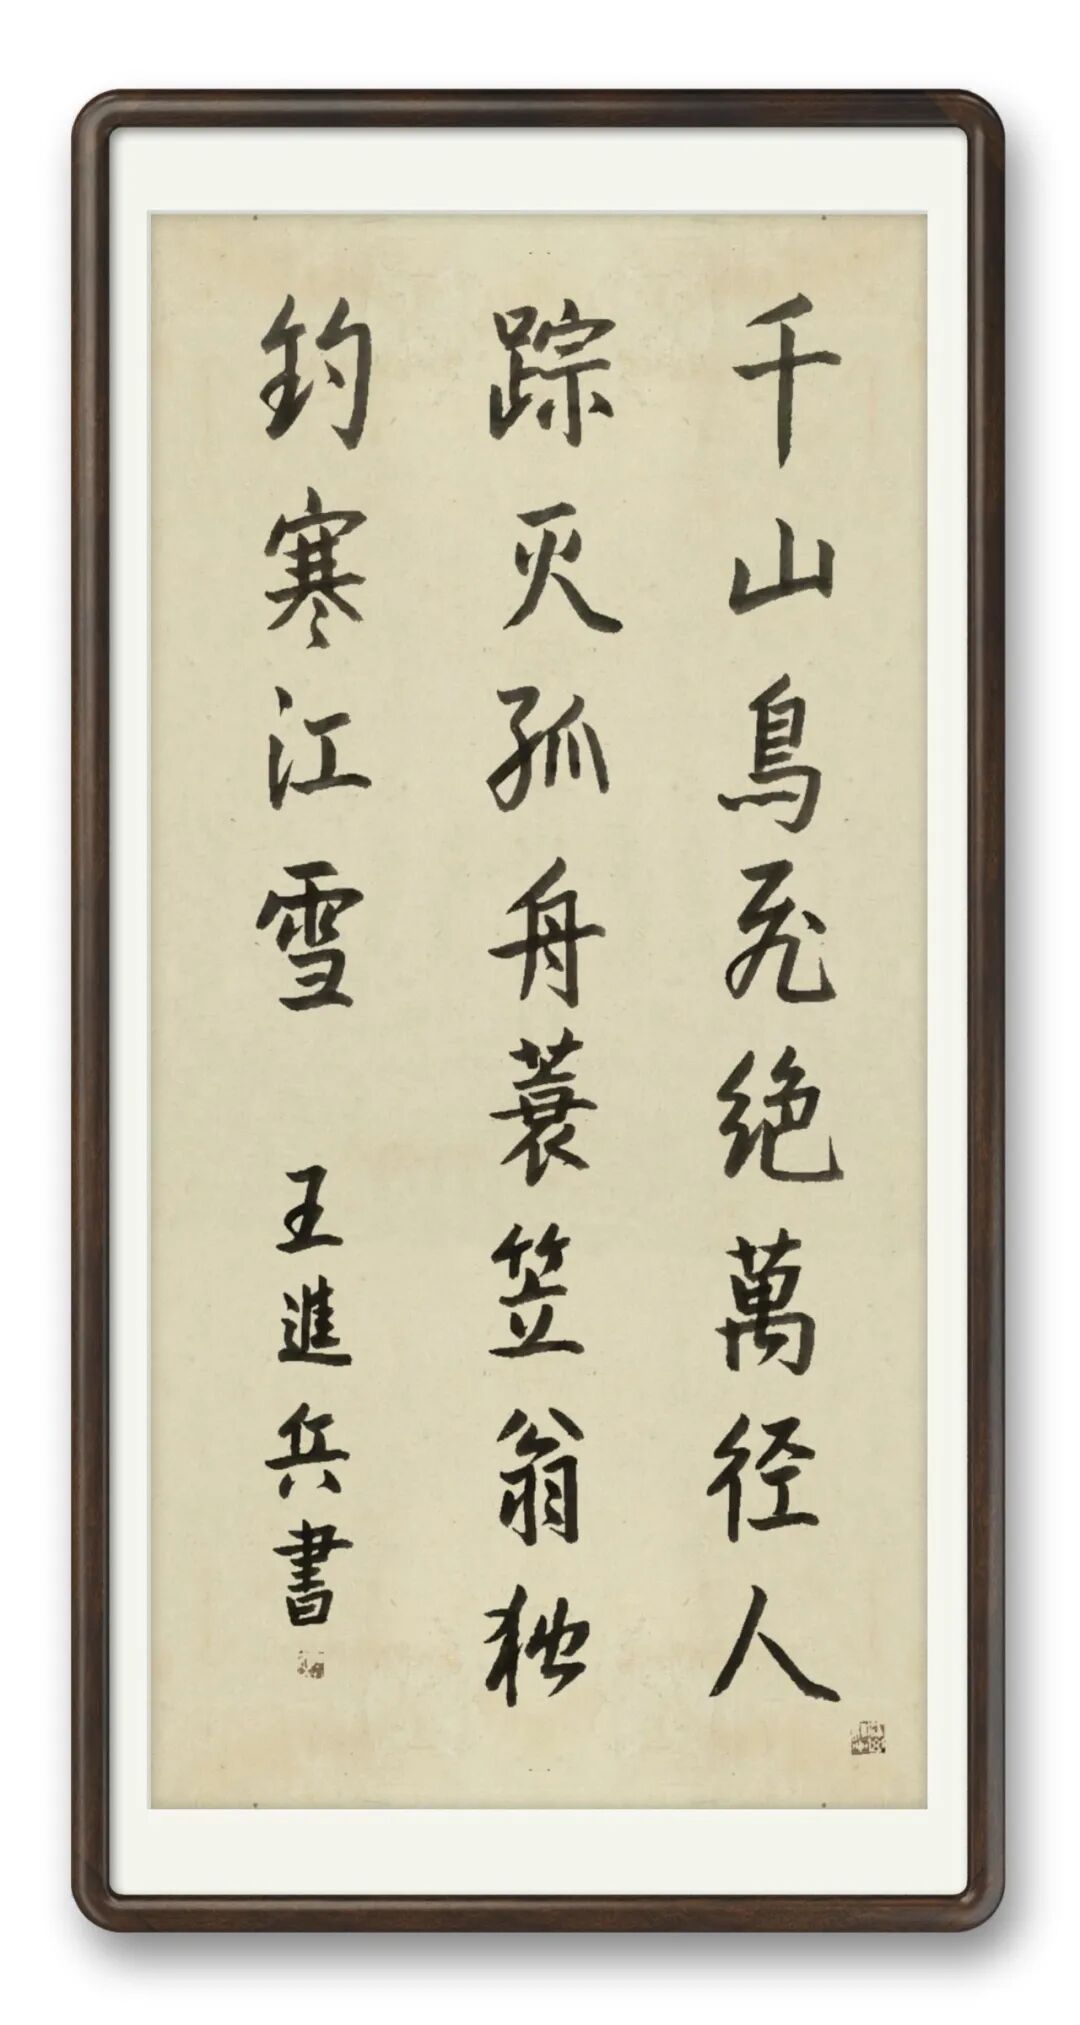 千山鳥飛绝萬径人
踪灭孤舟蓑笠翁独
钓寒江雪
王進兵書